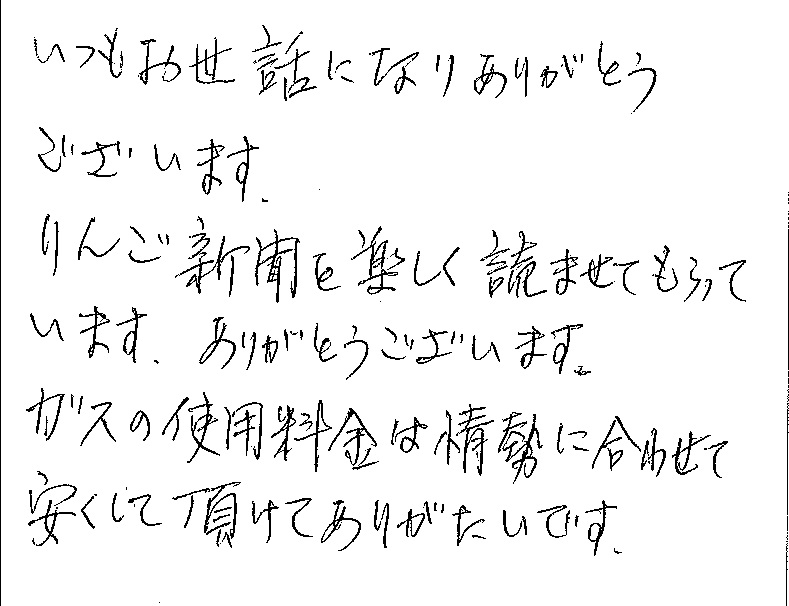 いつもお世話になりありがとう
ございます.
りんご新聞を楽しく読ませてもらって
います. ありがとうございます。
ガスの使用料金は情勢に合わせて
安くして頂けてありがたいです.